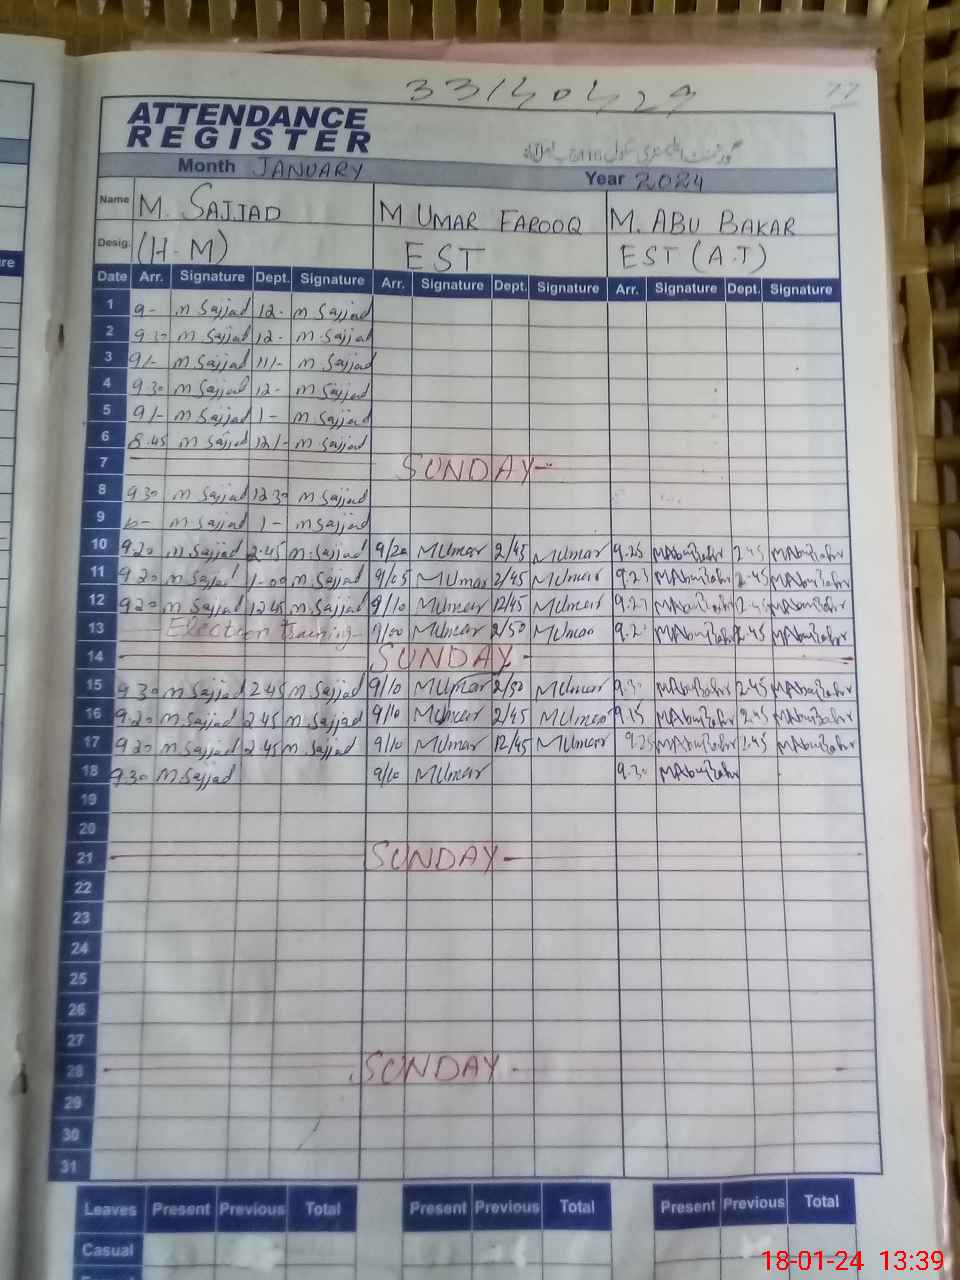 33140429
77
ATTENDANCE
REGISTER
Month JANUARY Year 2024
Name M. SAJJAD M UMAR FAROOQ M. ABU BAKAR
Desig. (H-M) EST EST (A.T)
Date Arr. Signature Dept. Signature Arr. Signature Dept. Signature Arr. Signature Dept. Signature
1 9- M Sajjad 12- M Sajjad
2 9.30 M Sajjad 12- M Sajjad
3 9/- M Sajjad 11/- M Sajjad
4 9.30 M Sajjad 12- M Sajjad
5 9/- M Sajjad 1- M Sajjad
6 8.45 M Sajjad 12/- M Sajjad
7 SUNDAY
8 9.30 M Sajjad 12.30 M Sajjad
9 M Sajjad 1- M Sajjad
10 9.20 M Sajjad 2.45 M Sajjad 9/20 MUmar 2/45 MUmar 9.25 MAbuBakr 2.45 MAbuBakr
11 9.20 M Sajjad 1-00 M Sajjad 9/05 MUmar 2/45 MUmar 9.23 MAbuBakr 2.45 MAbuBakr
12 9.20 M Sajjad 12.45 M Sajjad 9/10 MUmar 12/45 MUmar MAbuBakr 2.45 MAbuBakr
13 Election training 9/00 MUmar 2/50 MUmar 9.20 MAbuBakr 2.45 MAbuBakr
14 SUNDAY
15 9.30 M Sajjad 2.45 M Sajjad 9/10 MUmar 2/50 MUmar 9.30 MAbuBakr 2.45 MAbuBakr
16 9.20 M Sajjad 2.45 M Sajjad 9/10 MUmar 2/45 MUmar 9.15 MAbuBakr 2.45 MAbuBakr
17 9.20 M Sajjad 2.45 M Sajjad 9/10 MUmar 12/45 MUmar 9.25 MAbuBakr 2.45 MAbuBakr
18 9.30 M Sajjad 9/10 MUmar 9.30 MAbuBakr
19
20
21 SUNDAY
22
23
24
25
26
27
28 SUNDAY
29
30
31
Leaves Present Previous Total Present Previous Total Present Previous Total
Casual
18-01-24 13:39